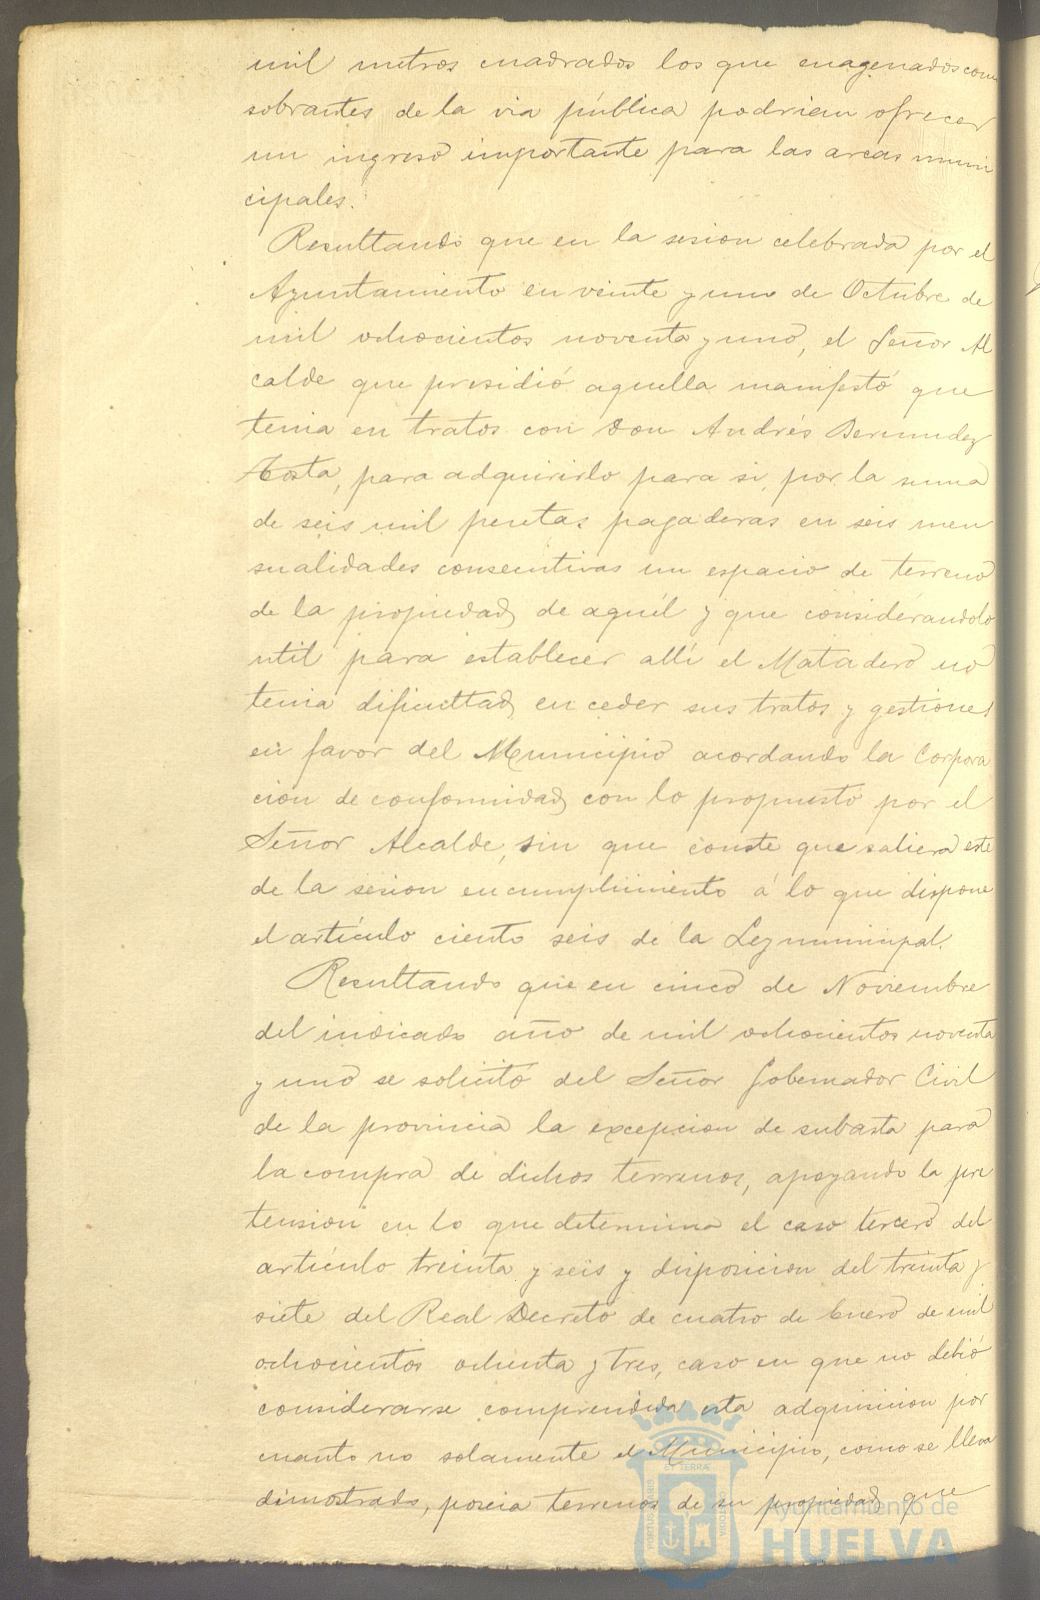 mil metros cuadrados los que enagenados como
sobrantes de la via pública podrian ofrecer
un ingreso importante para las arcas muni
cipales.
Resultando que en la sesion celebrada por el
Ayuntamiento en veinte y uno de Octubre de
mil ochocientos noventa y uno, el Señor Al
calde que presidió aquella manifestó que
tenia en tratos con Don Andrés Bermudez
para adquirirlo para si, por la suma
de seis mil pesetas pagaderas en seis men
sualidades consecutivas un espacio de terreno
de la propiedad de aquél y que considerándolo
util para establecer allí el Matadero no
tenia dificultad en ceder sus tratos y gestiones
en favor del Municipio acordando la Corpora
cion de conformidad con lo propuesto por el
Señor Alcalde, sin que conste que saliera este
de la sesion en cumplimiento á lo que dispone
el artículo ciento seis de la Ley municipal.
Resultando que en cinco de Noviembre
del indicado año de mil ochocientos noventa
y uno se solicitó del Señor Gobernador Civil
de la provincia la excepcion de subasta para
la compra de dichos terrenos, apoyando la pre
tension en lo que determina el caso tercero del
artículo treinta y seis y disposicion del treinta y
siete del Real Decreto de cuatro de Enero de mil
ochocientos ochenta y tres, caso en que no debió
considerarse comprendida esta adquisicion por
cuanto no solamente el Municipio, como se lleva
dimostrado, poseia terrenos de su propiedad que
Ayuntamiento de
HUELVA